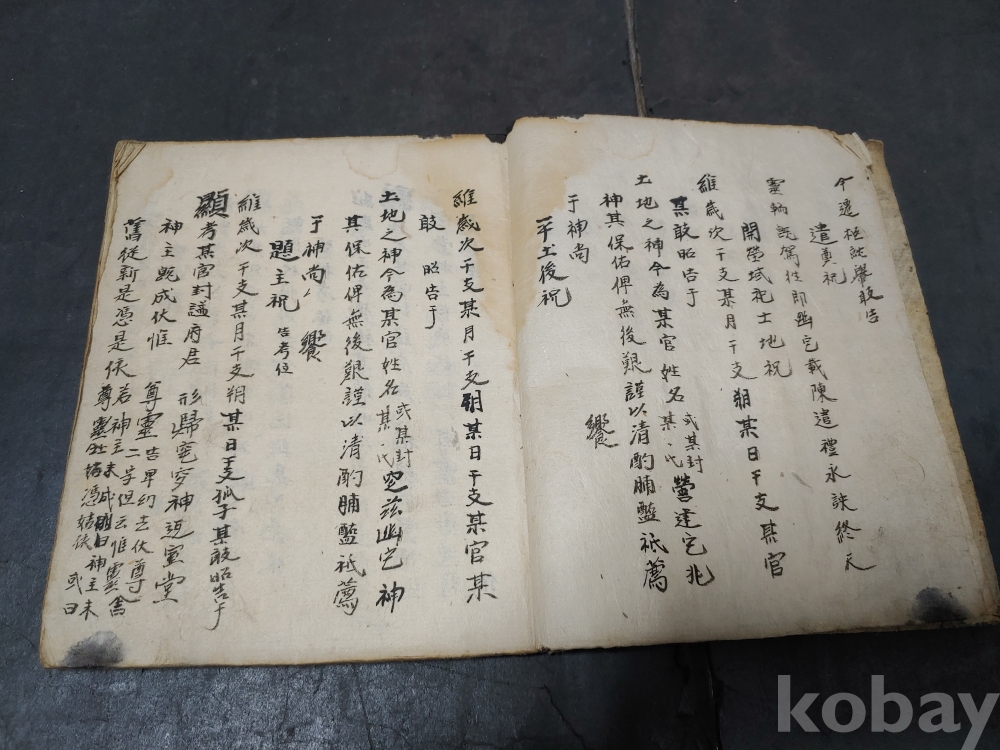 今遷柩就轝敢告
遣奠祝
靈輀旣駕徃即幽宅載陳遣禮永訣終天
開塋域祀土地祝
維歲次干支某月干支朔某日干支某官
某敢昭告于
土地之神今為某官姓名或某封某氏營建宅兆
神其保佑俾無後艱謹以清酌脯醢祗薦
于神尚
饗
平土後祝
維歲次干支某月干支朔某日干支某官某
敢昭告于
土地之神今為某官姓名或某封某氏窆茲幽宅神
其保佑俾無後艱謹以清酌脯醢祗薦
于神尚
饗
題主祝 告考位
維歲次干支某月干支朔某日干支孤子某敢昭告于
顯考某官封謚府君 形歸窀穸神返室堂
神主旣成伏惟 尊靈
舍舊從新是憑是依
kobay